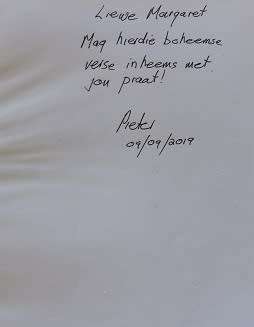 Liewe Margaret
Mag hierdie boheemse
verse inheems met
jou praat!
Pieter
09/09/2019